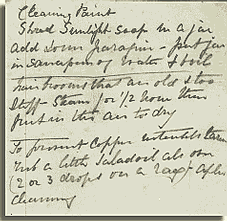 Cleaning Paint
Shred Sunlight soap in a jar
add some parafin - put jar
in saucepan of water & boil
hair brooms that are old & too
stiff - Steam for 1/2 hour then
put in the air to dry
To prevent Copper utensils tarnish
rub a little salad oil all over
(2 or 3 drops on a rag) after
cleaning